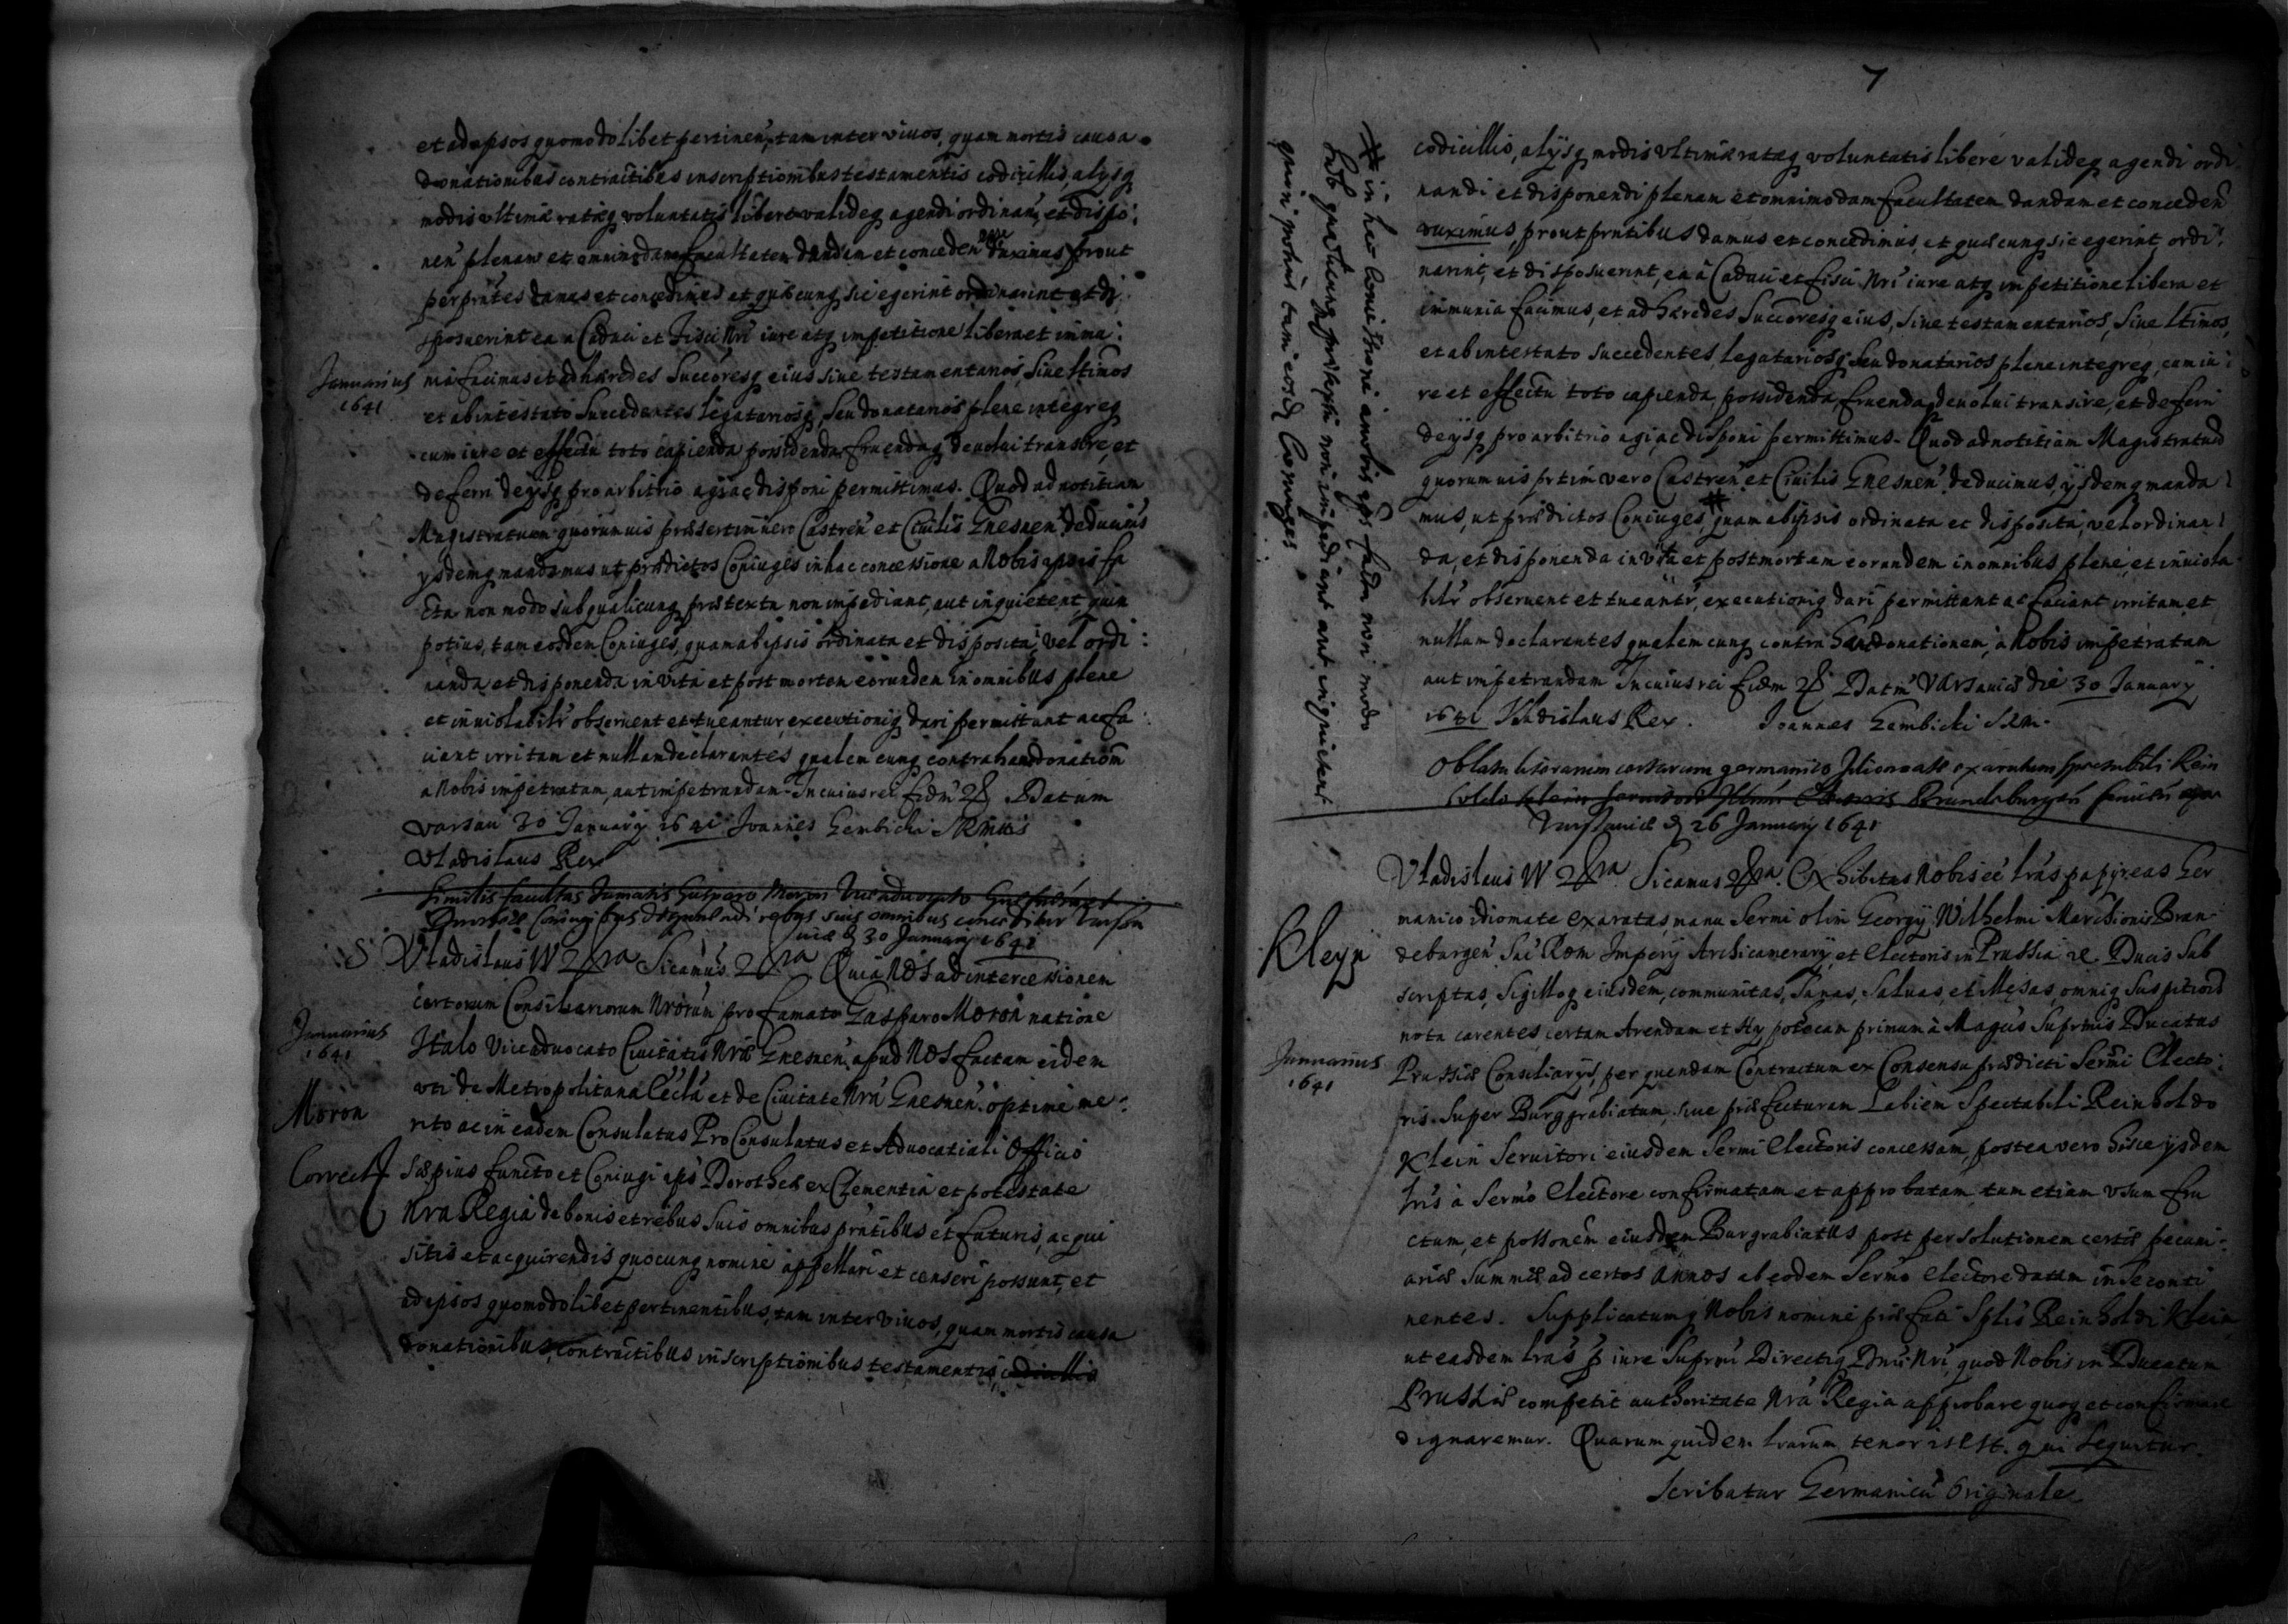 et ad ipsos quomodolibet pertinen, tam inter vivos, quam mortis causa
donationibus contractibus inscriptionibus testamentis codicillis, alysq
modis ultimæ ratæq voluntatis libere valideq agendi ordinan, et dispo:
nen plenam et omnimodam facultatem dandam et conceden duximus prout
per pntes damus et concedimus et quæcunq sic egerint ordinarint et di
sposuerint ea a Caduci et Fisci Nri iure atq impetitione libera et immu:
Januarius
1641
nia facimus et ad hæredes Succoresq eius sive testamentarios, Sive ltimos
et ab intestato Succedentes legatariosq, Seu donatarios plene integreq
cum iure et effectu toto capienda possidenda fruendaq devolvi transire, et
deferri deysq pro arbitrio agi ac disponi permittimus. Quod ad notitiam
Magistratuum quorumvis præsertim vero Castren et Civilis Gnesnen deducimus
ysdemq mandamus ut prædictos Coniuges in hac concessione a Nobis ipsis fa
cta non modo sub qualicunq prætextu non impediant, aut inquietent quin
potius, tam eosdem Coniuges, quam ab ipsis ordinata et disposita, vel ordi:
nanda et disponenda in vita et post mortem eorundem in omnibus plene
et inviolabilr observent et tueantur, executioniq dari permittant ac fa
ciant irritam et nullam declarantes qualemcunq contra hanc donationem
a Nobis impetratam, aut impetrandam. In cuius rei fidem Datum
Varsav 30 January 1641 Joannes Gembicki
Vladislaus Rex
Similis facultas Gasparo Moron Viceadvocato Gnesnensi et
Dorotheæ Coniugibus disponendi rebus suis omnibus conceditur Varso
viæ d 30 January 1641
S Vladislaus IV Sicamus Quia Nos ad intercessionem
certorum Consiliariorum Nrorum pro famato Gasparo Moron natione
Januarius
1641
Italo Viceadvocato Civitatis Nræ Gnesnen apud Nos factam eidem
uti de Metropolitana Eccla et de Civitate Nra Gnesnen. optime me:
Moron
rito ac in eadem Consulatus Pro Consulatus et Advocatiali Officio
Correct
sæpius functo et Coniugi ips Dorotheæ ex Clementia et potestate
Nra Regia de bonis et rebus suis omnibus pntibus et futuris, acqui
sitis et acquirendis quocunq nomine appellari et censeri possunt, et
ad ipsos quomodolibet pertinentibus, tam inter vivos, quam mortis causa
donationibus, contractibus inscriptionibus testamentis, codicillis
7
codicillis, alysq modis ultimæ ratæq voluntatis libere valideq agendi ordi
nandi et disponendi plenam et omnimodam facultatem dandam et conceden
duximus, prout pntibus damus et concedimus, et quæcunq sic egerint, ordi:
narint, et disposuerint, ea a Caduci et Fisci Nri iure atq impetitione libera et
immunia facimus, et ad hæredes Succoresq eius, sive testamentarios, sive ltimos,
et ab intestato succedentes, legatariosq, seu donatarios plene integreq, cum iu:
re et effectu toto capienda, possidenda, fruendaq, devolvi transire, et deferri
deysq pro arbitrio agi, ac disponi permittimus. Quod ad notitiam Magistratuum
quorumvis prtim vero Castren et Civilis Gnesnen deducimus, ysdemq manda
mus, ut prædictos Coniuges, # quam ab ipsis ordinata et disposita, vel ordinan
da, et disponenda in vita et post mortem eorundem in omnibus plene, et inviola
bilr observent et tueantr, executioniq dari permittant ac faciant irritam et
nullam declarantes qualemcunq contra hanc donationem, a Nobis impetratam
aut impetrandam. In cuius rei fidem Datm Varsaviæ die 30 January
1641 Vladislaus Rex. Joannes Gembicki
# in hac concessione a nobis ips facta non modo
sub qualicunq prætextu non impediant aut inquietent
quin potius tam eosd Coniuges
Oblata literarum certarum germanico idiomate exaratarum spectabili Rein
holdo Klein servitori Electoris Brandeburgen
Varsaviæ d 26 January 1641
Vladislaus IV Sicamus Exhibitas Nobis ee lras papyreas Ger
manico idiomate exaratas manu Sermi olim Georgy Wilhelmi Marchionis Bran
Kleyn
deburgen Sac Rom Impery Archicamerary, et Electoris in Prussia Ducis Sub
scriptas, Sigilloq eiusdem, communitas, Sanas, Salvas, et illęsas, omniq suspitionis
nota carentes, certam Arendam et Hypotecam primum a Magcis Supremis Ducatus
Januarius
1641
Prussiæ Consiliarys, per quendam Contractum ex Consensu prædicti Sermi Electo:
ris. Super Burggrabiatum, sive præfecturam Labien Spectabili Reinholdo
Klein Servitori eiusdem Sermi Electoris concessam, postea vero hisce ysdem
lris à Sermo Electore confirmatam et approbatam, tum etiam usum fru
ctum, et possonem eiusdem Burgrabiatus post persolutionem certæ pecuni:
ariæ Summæ ad certos annos ab eodem Sermo Electore datam in se conti
nentes. Supplicatumq Nobis nomine præfati Splis Reinholdi Klein,
ut easdem lras p iure Supremi Directiq Dnii Nri, quod Nobis in Ducatum
Prussiæ competit authoritate Nra Regia approbare quoq et confirmare
dignaremur. Quarum quidem lrarum tenor is est. qui sequitur.
Scribatur Germanicũ Originale